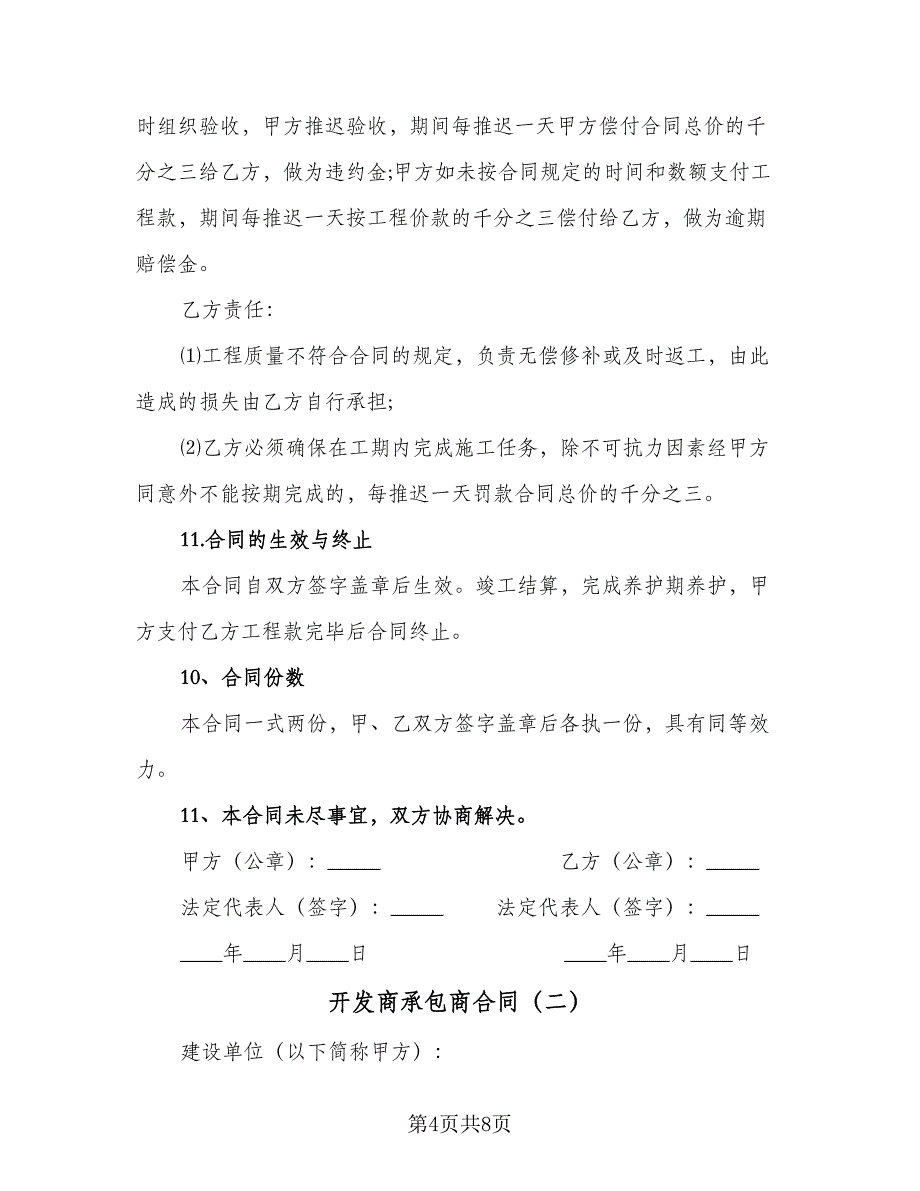 时组织验收，甲方推迟验收，期间每推迟一天甲方偿付合同总价的千
分之三给乙方，做为违约金;甲方如未按合同规定的时间和数额支付工
程款，期间每推迟一天按工程价款的千分之三偿付给乙方，做为逾期
赔偿金。
乙方责任：
⑴工程质量不符合合同的规定，负责无偿修补或及时返工，由此
造成的损失由乙方自行承担;
⑵乙方必须确保在工期内完成施工任务，除不可抗力因素经甲方
同意外不能按期完成的，每推迟一天罚款合同总价的千分之三。
11.合同的生效与终止
本合同自双方签字盖章后生效。竣工结算，完成养护期养护，甲
方支付乙方工程款完毕后合同终止。
10、合同份数
本合同一式两份，甲、乙双方签字盖章后各执一份，具有同等效
力。
11、本合同未尽事宜，双方协商解决。
甲方（公章）：_____ 乙方（公章）：_____
法定代表人（签字）：_____ 法定代表人（签字）：_____
____年____月____日 ____年____月____日
开发商承包商合同（二）
建设单位（以下简称甲方）：
第4页共8页